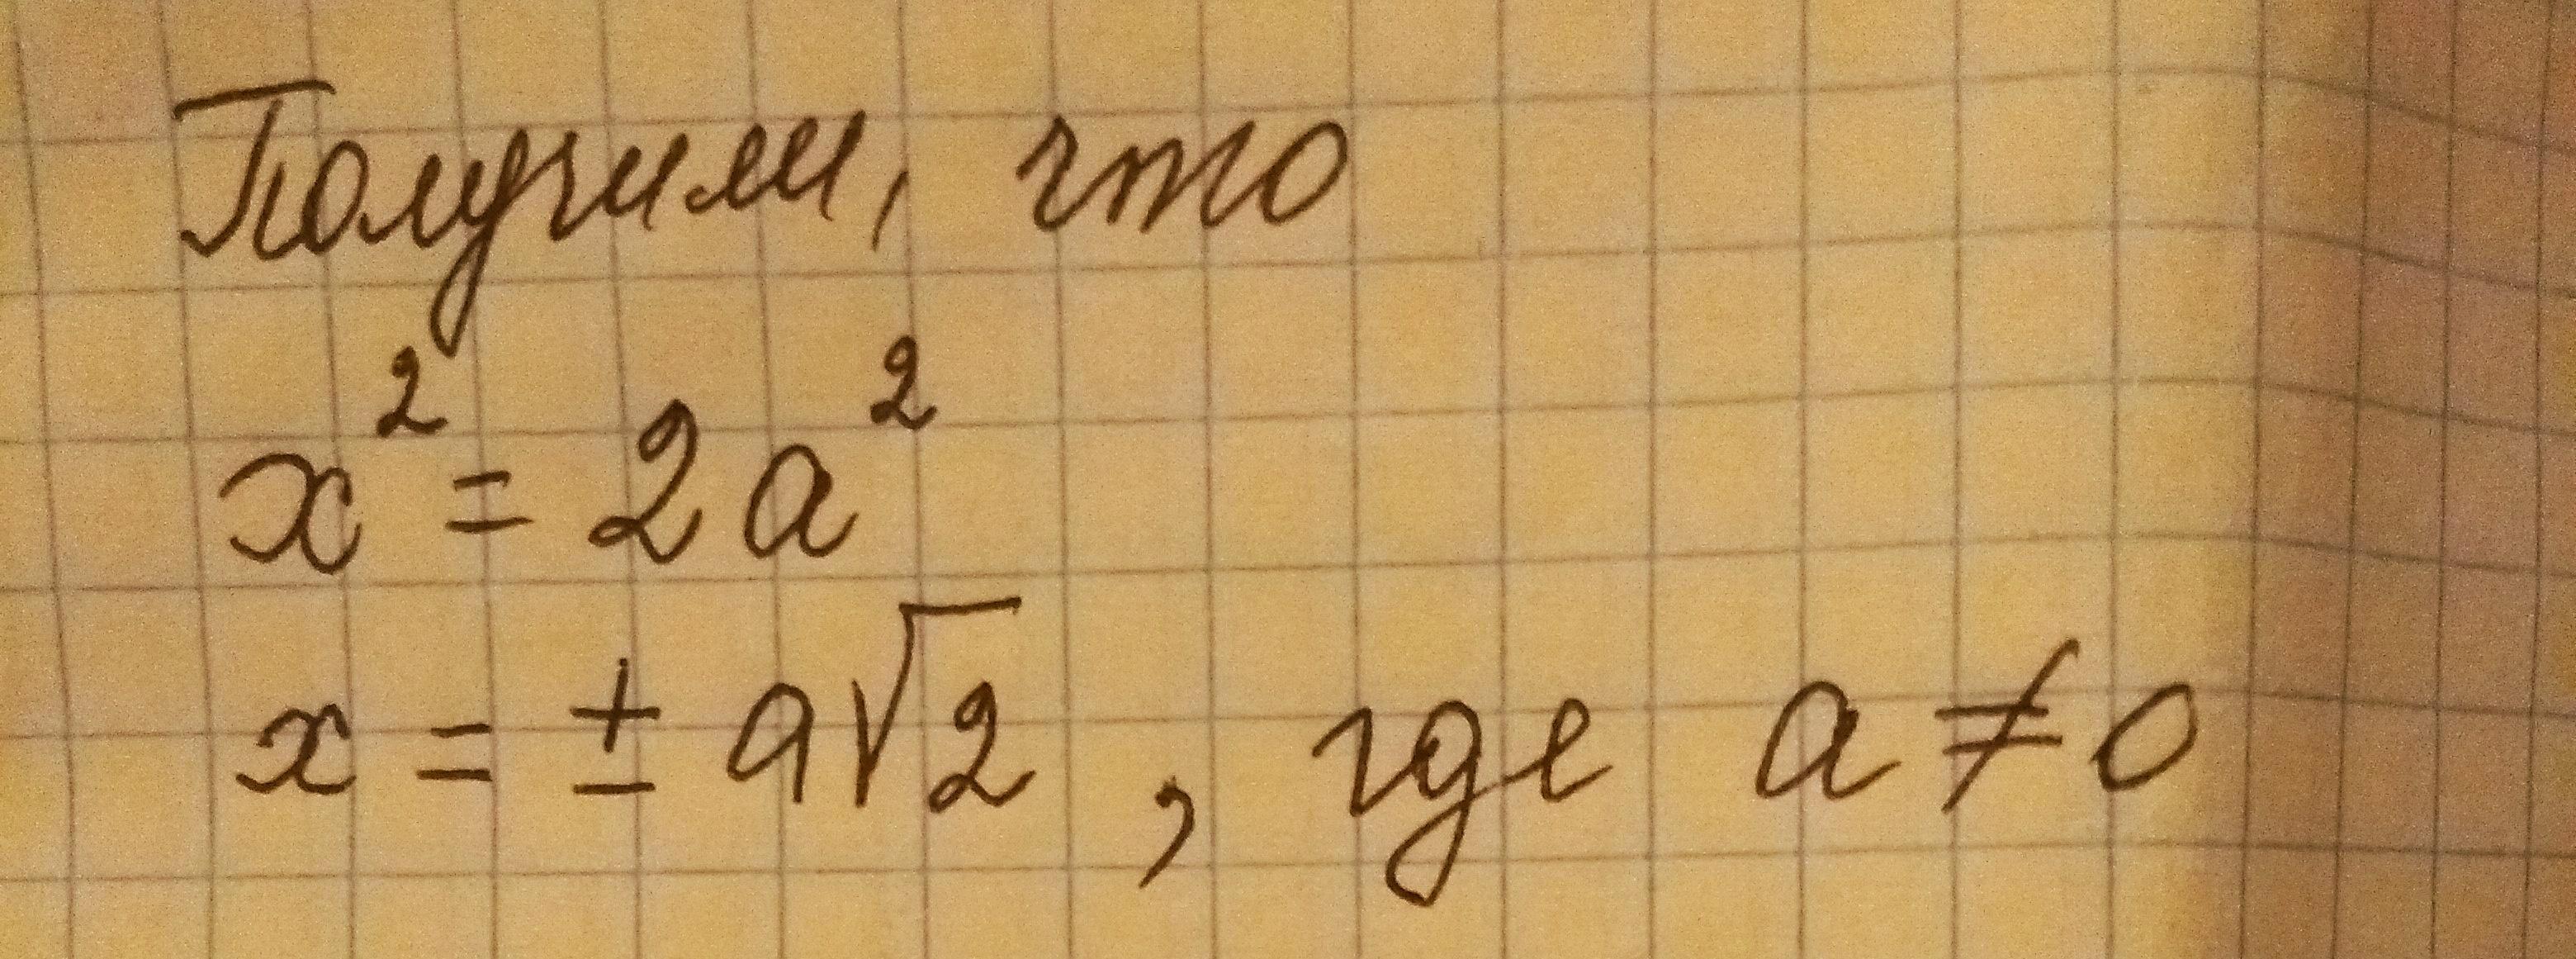 Получим, что
x² = 2a²
x = ± a√2 , где a ≠ 0